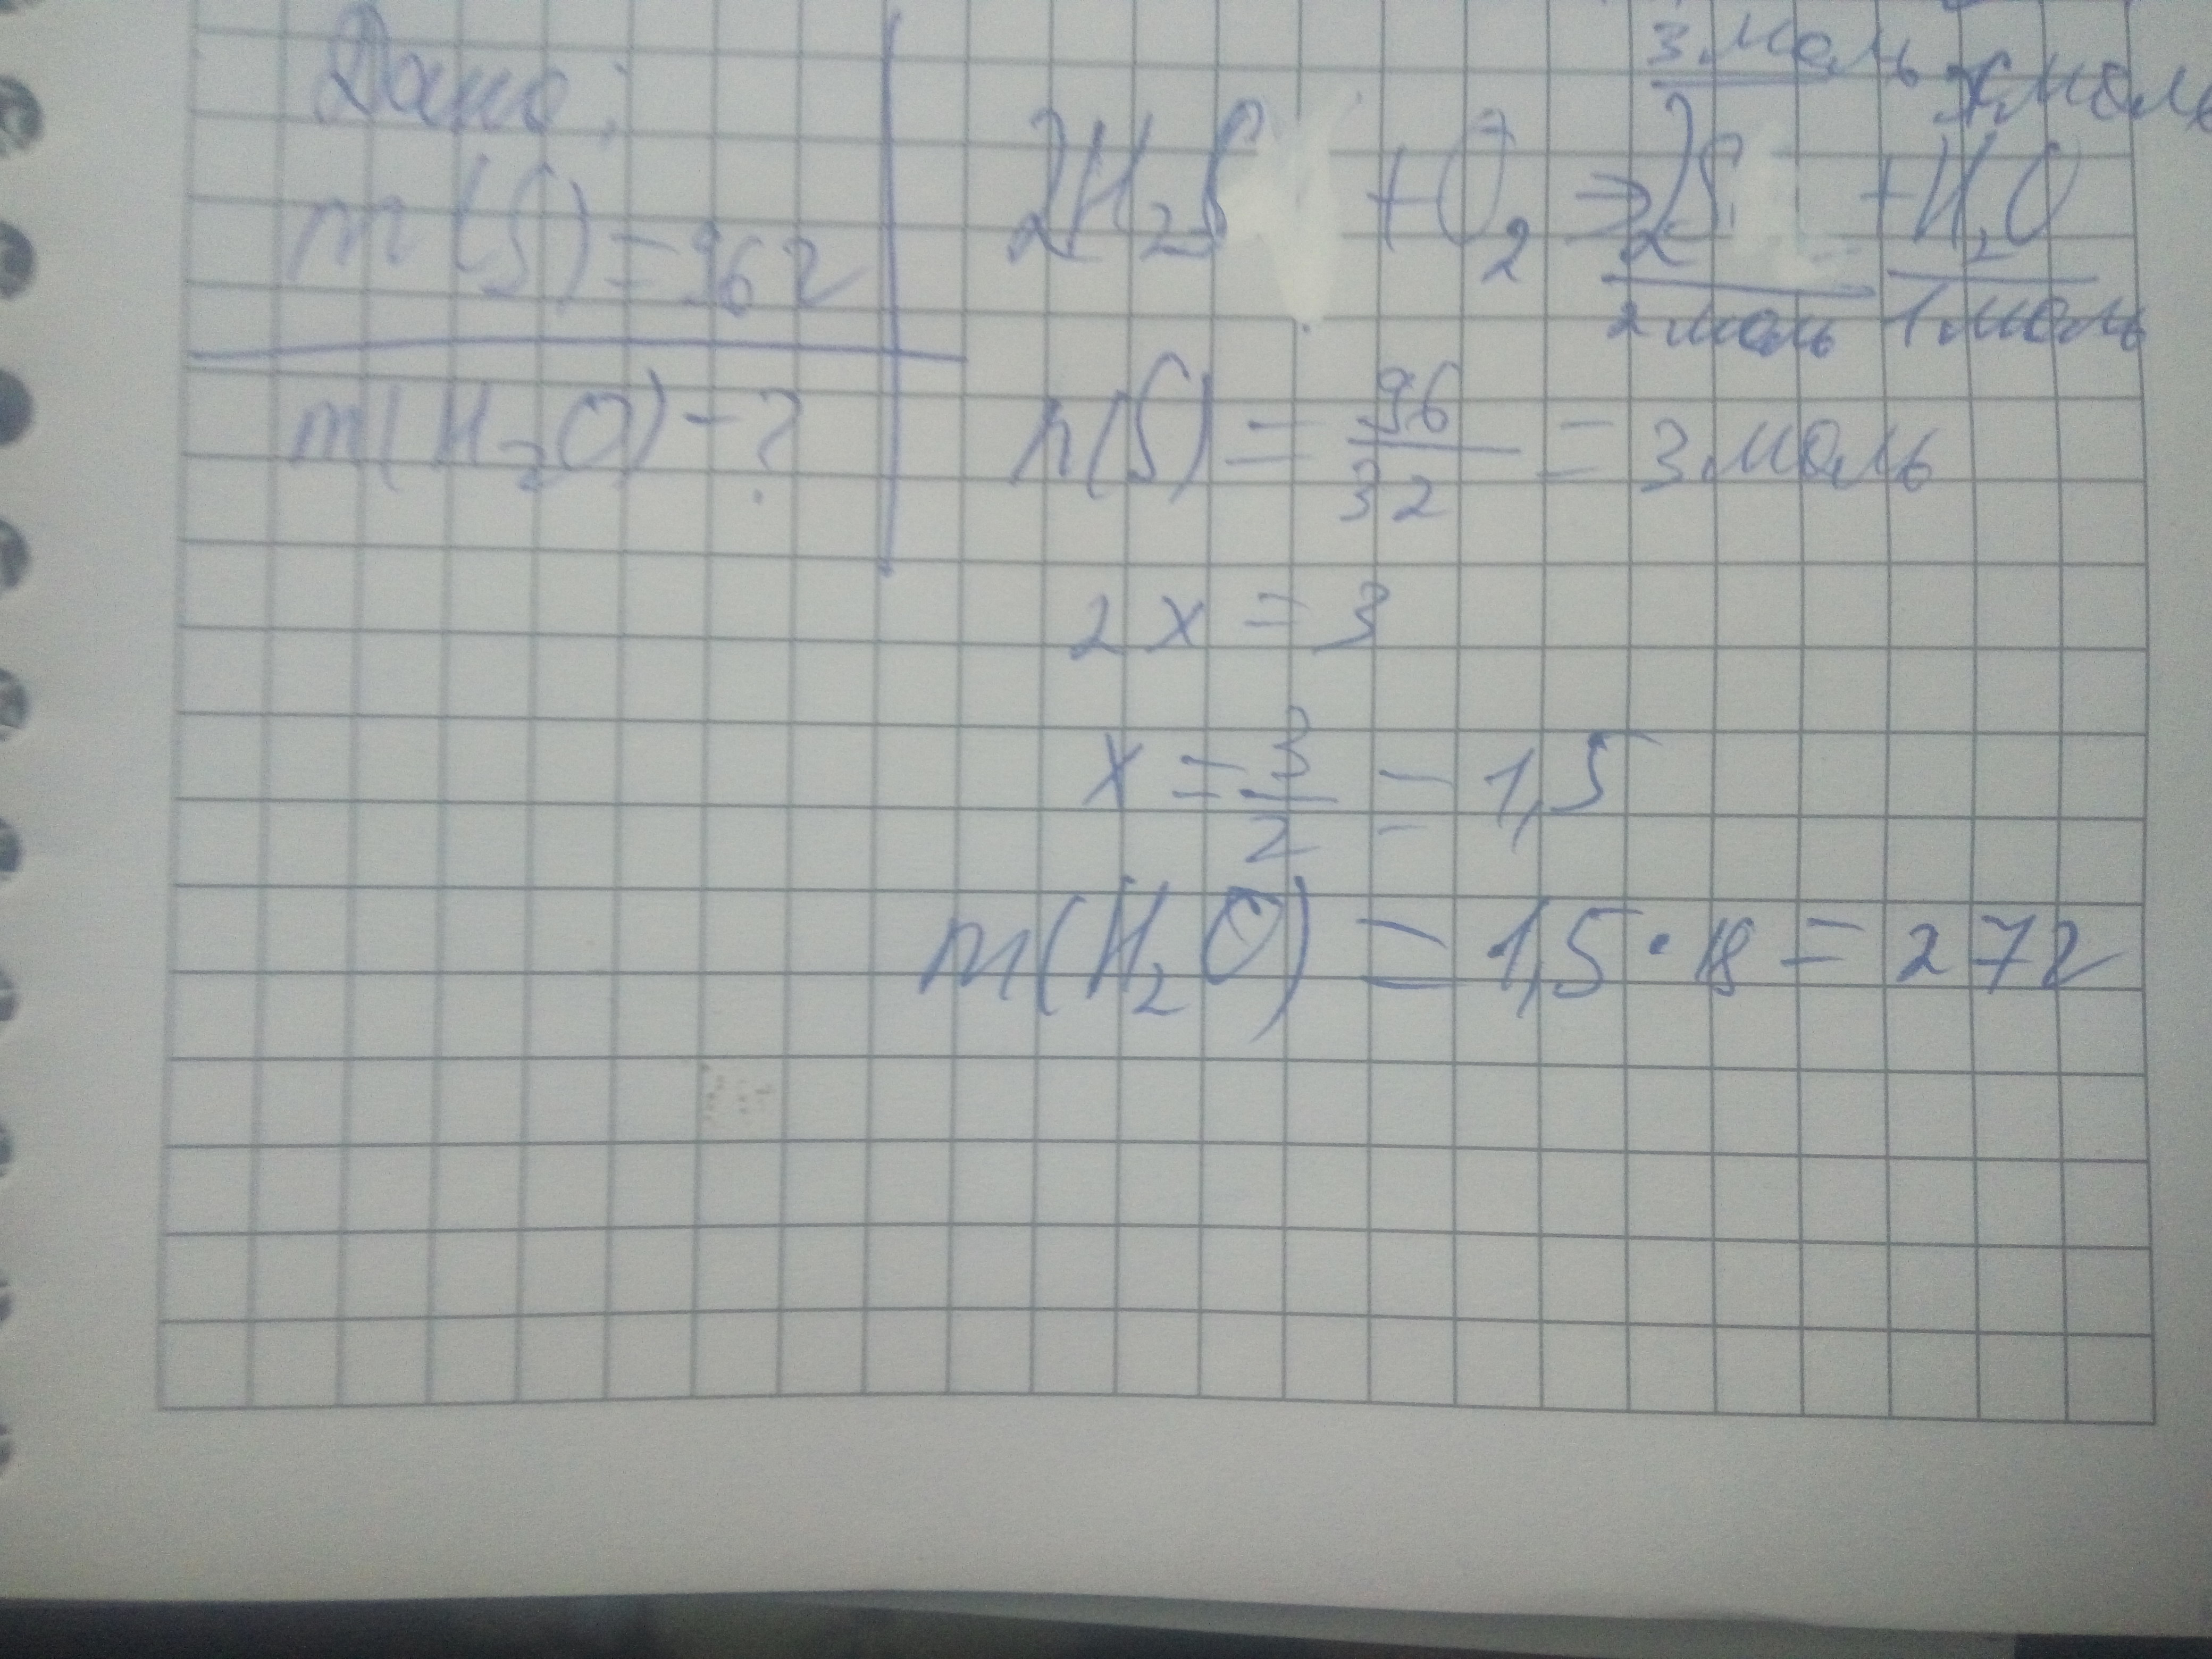 Дано:
m(S)=96г
m(H₂O)-?
3 моль x моль
2H₂S +O₂ → 2S +H₂O
2 моль 1 моль
n(S) = 96/32 = 3 моль
2x = 3
x = 3/2 = 1,5
m(H₂O) = 1,5·18 = 27г